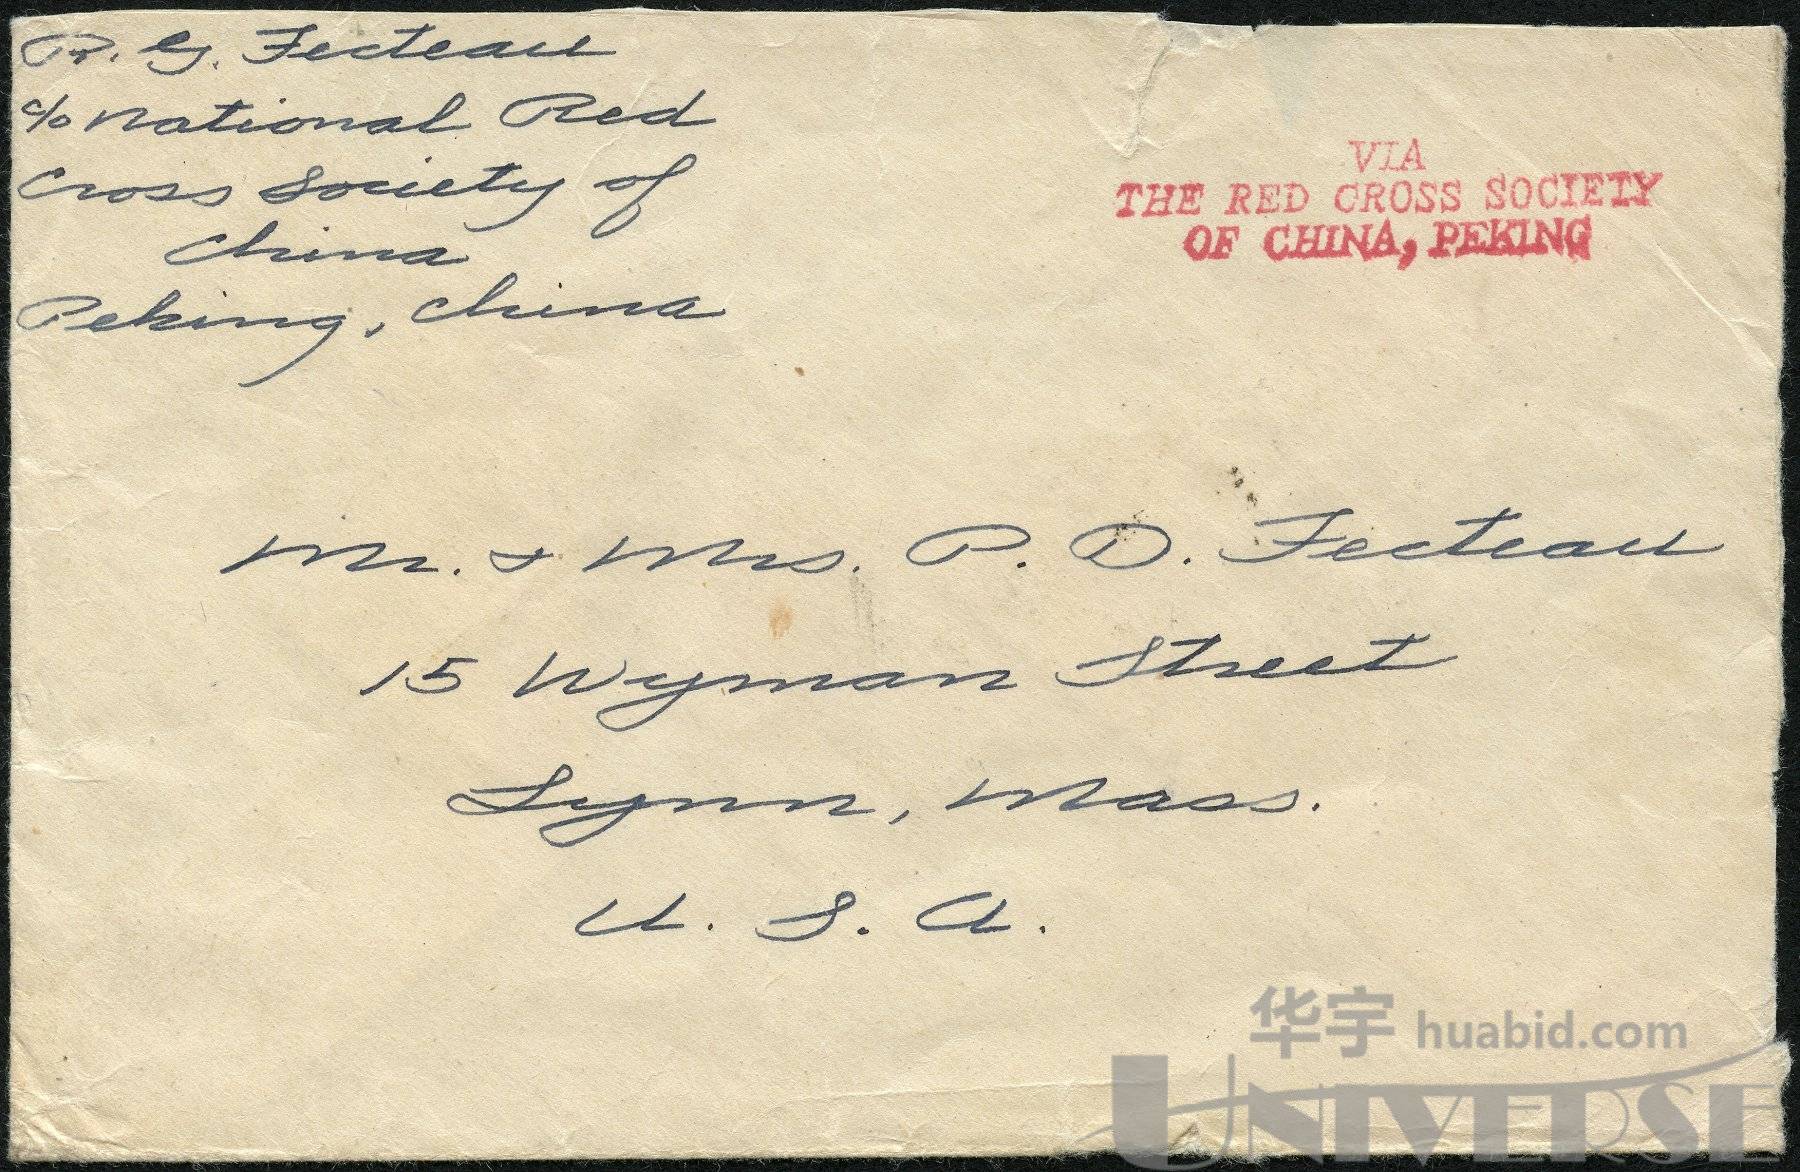 R. G. Fecteau
c/o National Red
Cross Society of
China
Peking, China
VIA
THE RED CROSS SOCIETY
OF CHINA, PEKING
Mr. & Mrs. P. D. Fecteau
15 Wyman Street
Lynn, Mass.
U. S. A.
华宇 huabid.com
UNIVERSE